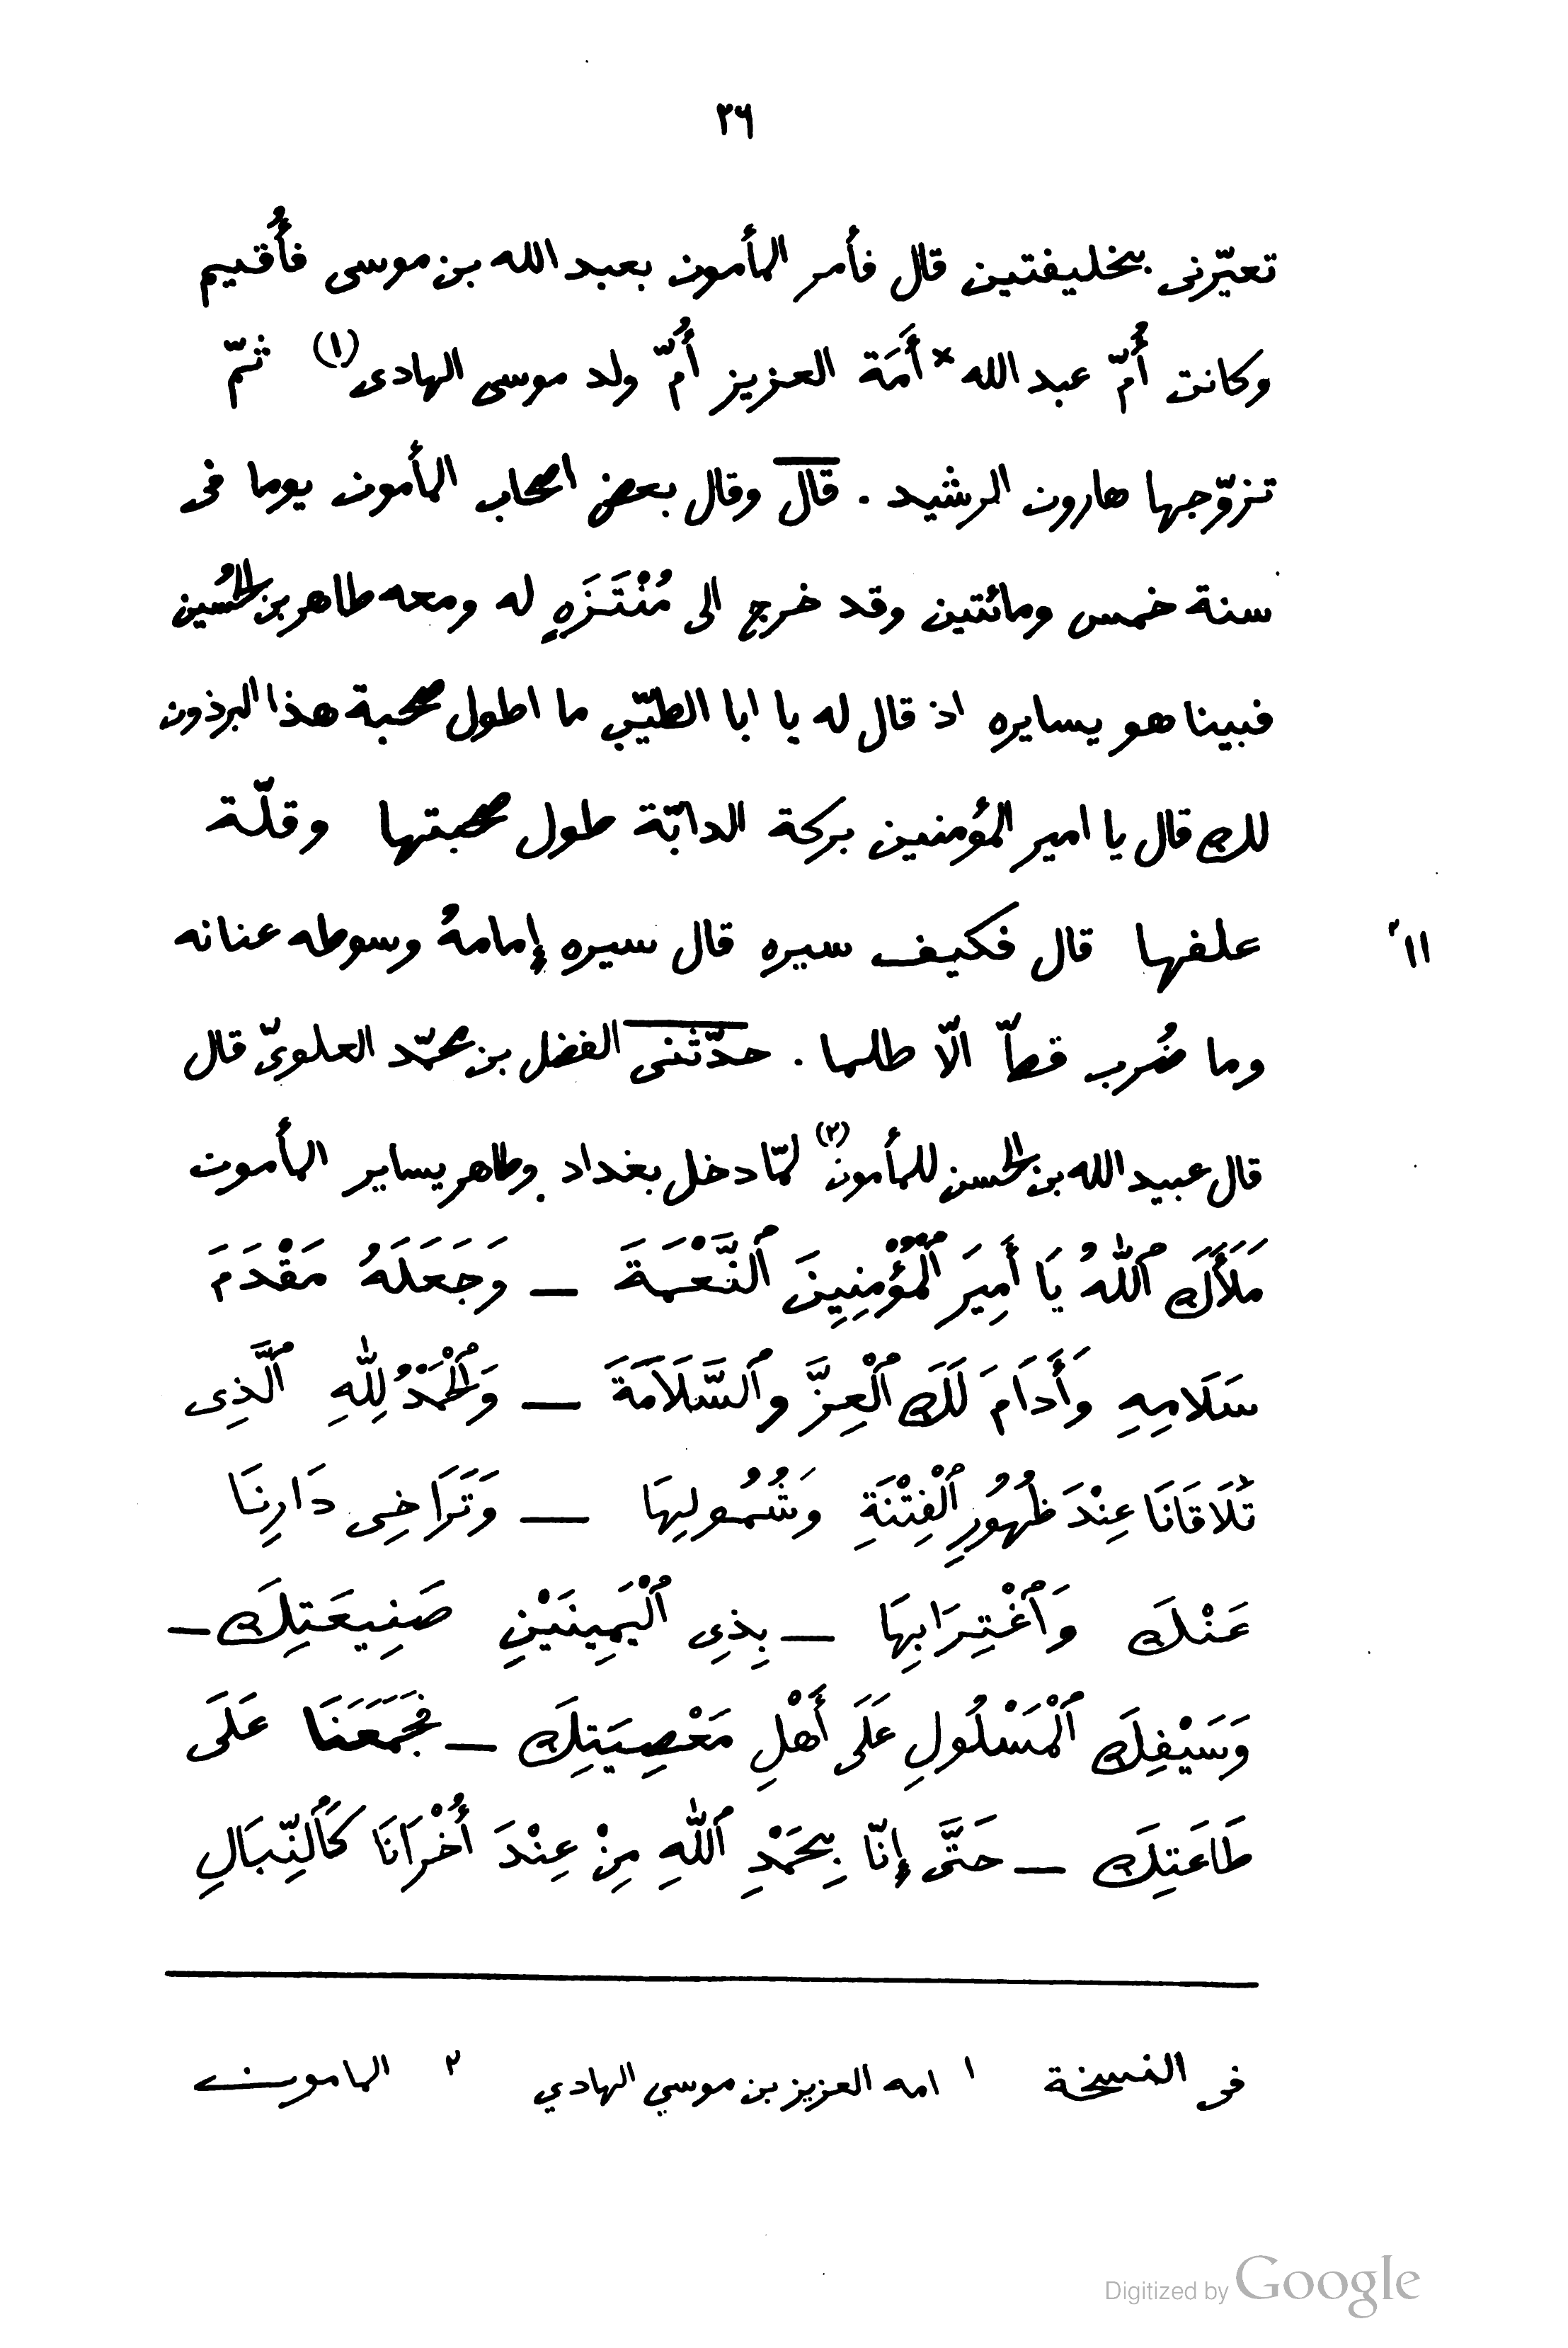 ٣٦
تعيّرنى بخليفتين قال فأمر المأمون بعبد الله بن موسى فأُقيم
وكانت أُمّ عبد الله * أَمَة العزيز أُمّ ولد موسى الهادى (١) ثمّ
تزوّجها هارون الرشيد . قال وقال بعض اصحاب المأمون يوما فى
سنة خمس ومائتين وقد خرج الى مُنْتَزَهٍ له ومعه طاهر بن الحُسين
فبينا هو يسايره اذ قال له يا ابا الطيّب ما اطول صحبة هذا البرذون
لك قال يا امير المؤمنين بركة الدابّة طول صحبتها وقلّة
علفها قال فكيف سيره قال سيره إمامهُ وسوطه عنانه
١١ʳ
وما ضُرب قطّ الّا ظلما . حدّثنى الفضل بن محمّد العلوىّ قال
قال عبيد الله بن الحسن للمأمون (٢) لمّا دخل بغداد وطاهر يساير المأمون
مَلَأَكَ ٱللهُ يَا أَمِيرَ ٱلْمُؤْمِنِينَ ٱلنَّعْمَةَ – وَجَعَلَهُ مَقْدَمَ
سَلَامِهِ وَأَدَامَ لَكَ ٱلْعِزَّ وٱلسَّلَامَةَ – وَٱلْحَمْدُ لِلهِ ٱلَّذِى
تَلَاقَانَا عِنْدَ ظُهُورِ ٱلْفِتْنَةِ وَشُمُولِهَا – وَتَرَاخِى دَارِنَا
عَنْكَ وَٱغْتِرَابِهَا – بِذِى ٱلْيَمِينَيْنِ صَنِيعَتِكَ –
وَسَيْفِكَ ٱلْمَسْلُولِ عَلَى أَهْلِ مَعْصِيَتِكَ – فَجَمَعَنَا عَلَى
طَاعَتِكَ – حَتَّى إِنّا بِحَمْدِ ٱللهِ مِنْ عِنْدَ أُخْرَانَا كَٱلنِّبَالِ
فى النسخة ١ امه العزيز بن موسي الهادي ٢ المامون
Digitized by Google